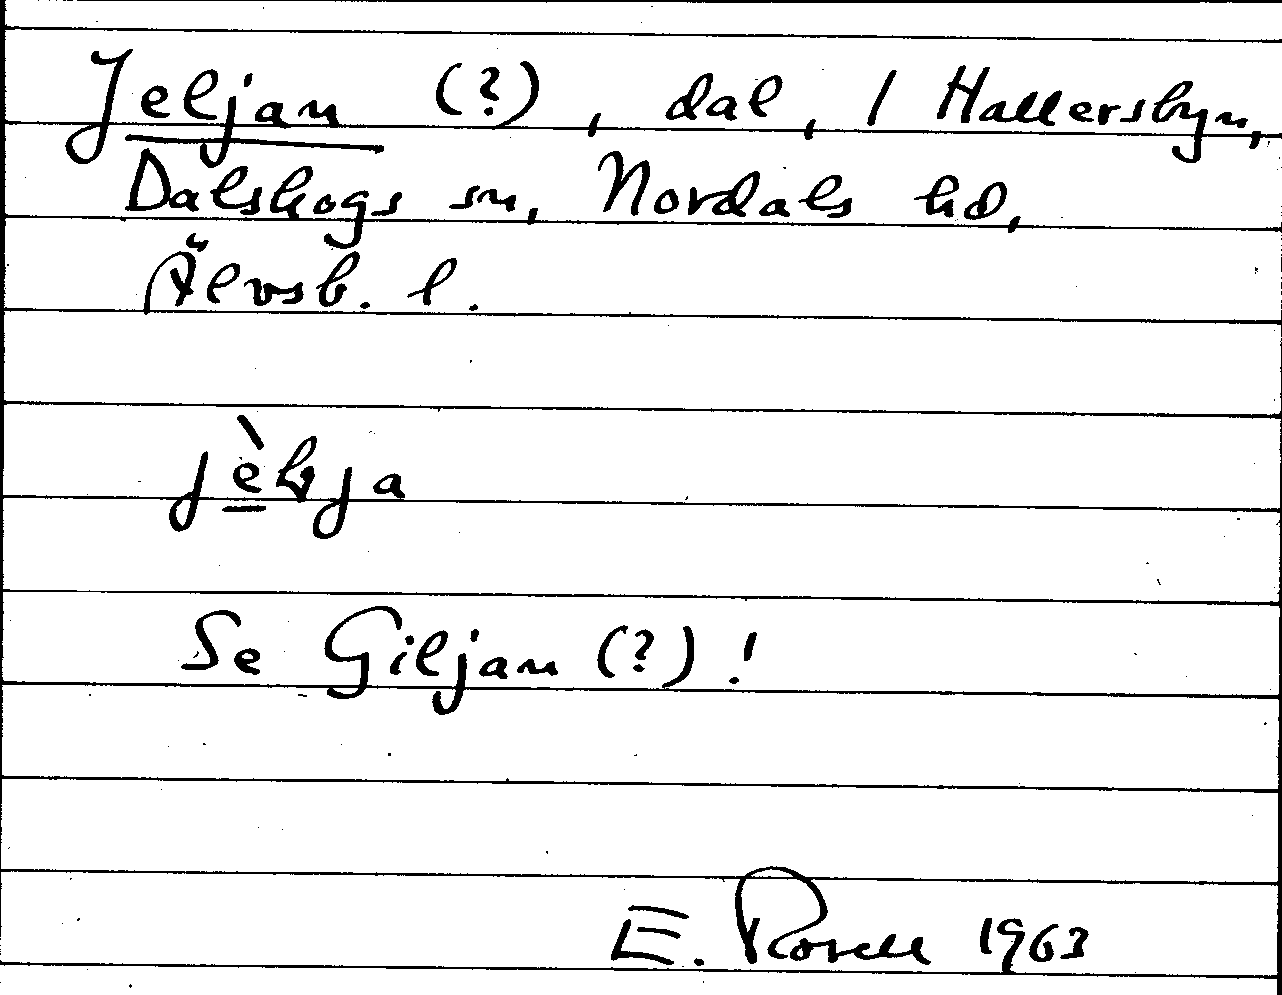 Jeljan (?), dal, / Hallersbyn,
Dalskogs sn, Nordals hd,
Älvsb. l.
Se Giljan (?)!
E. Rosell 1963